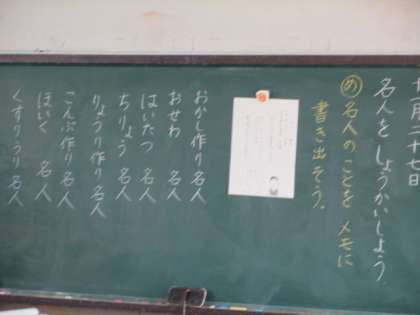 名人をしょうかいしよう。
め 名人のことをメモに
書き出そう。
おかし作り名人
おせわ 名人
はいたつ 名人
ちりょう 名人
りょうり作り名人
こんぶ作り名人
ほいく 名人
くすりうり名人